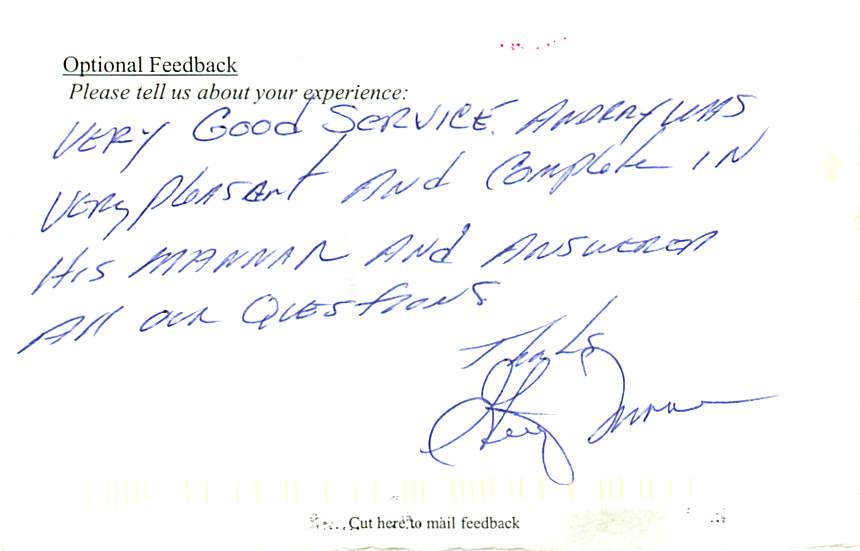 Optional Feedback
Please tell us about your experience:
VERY Good SERVICE. ANDREY WAS
VERY PleASAnt And Complete IN
His MANNAR And ANSWERED
All OUR QUEStIONS
Thanks
Cut here to mail feedback